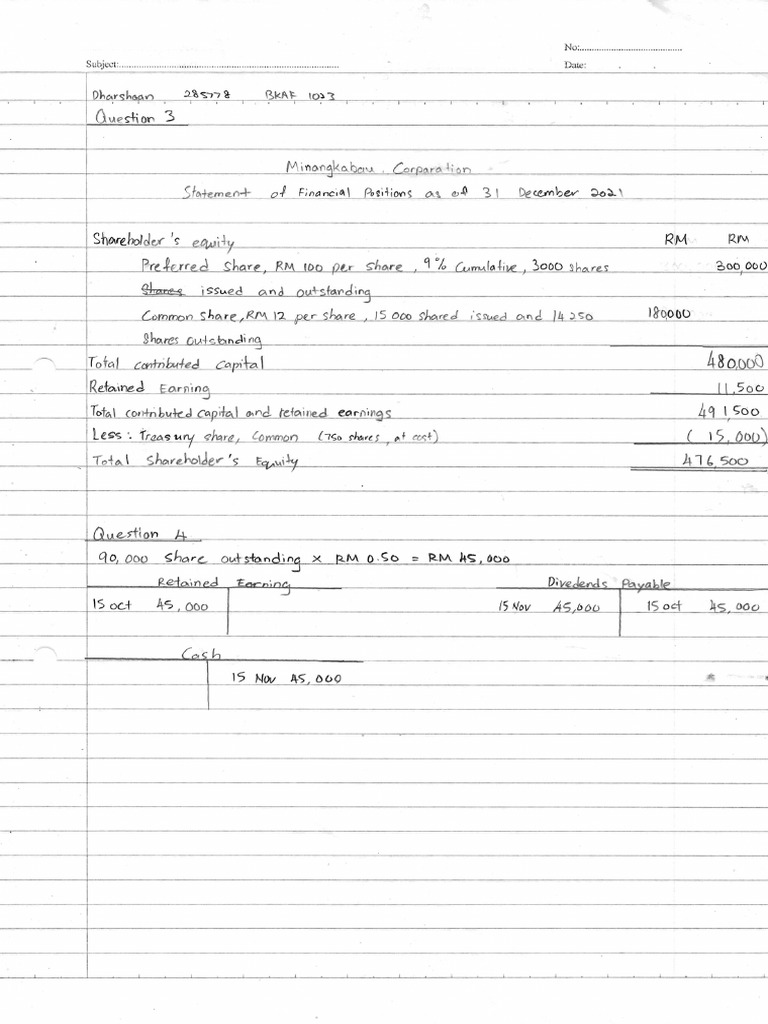 No:
Subject: Date:
Dharshaan 285778 BKAF 1023
Question 3
Minangkabau Corparation
Statement of Financial Positions as of 31 December 2021
Shareholder's equity RM RM
Preferred share, RM 100 per share, 9% Cumulative, 3000 shares 300,000
Shares issued and outstanding
Common share, RM 12 per share, 15 000 shared issued and 14 250 180000
Shares outstanding
Total contributed capital 480,000
Retained Earning 11,500
Total contributed capital and retained earnings 491500
Less: Treasury share, Common (750 shares, at cost) (15,000)
Total Shareholder's Equity 476,500
Question 4
90,000 Share outstanding × RM 0.50 = RM 45,000
Retained Earning Divedends Payable
15 oct 45,000 15 Nov 45,000 15 oct 45,000
Cash
15 Nov 45,000